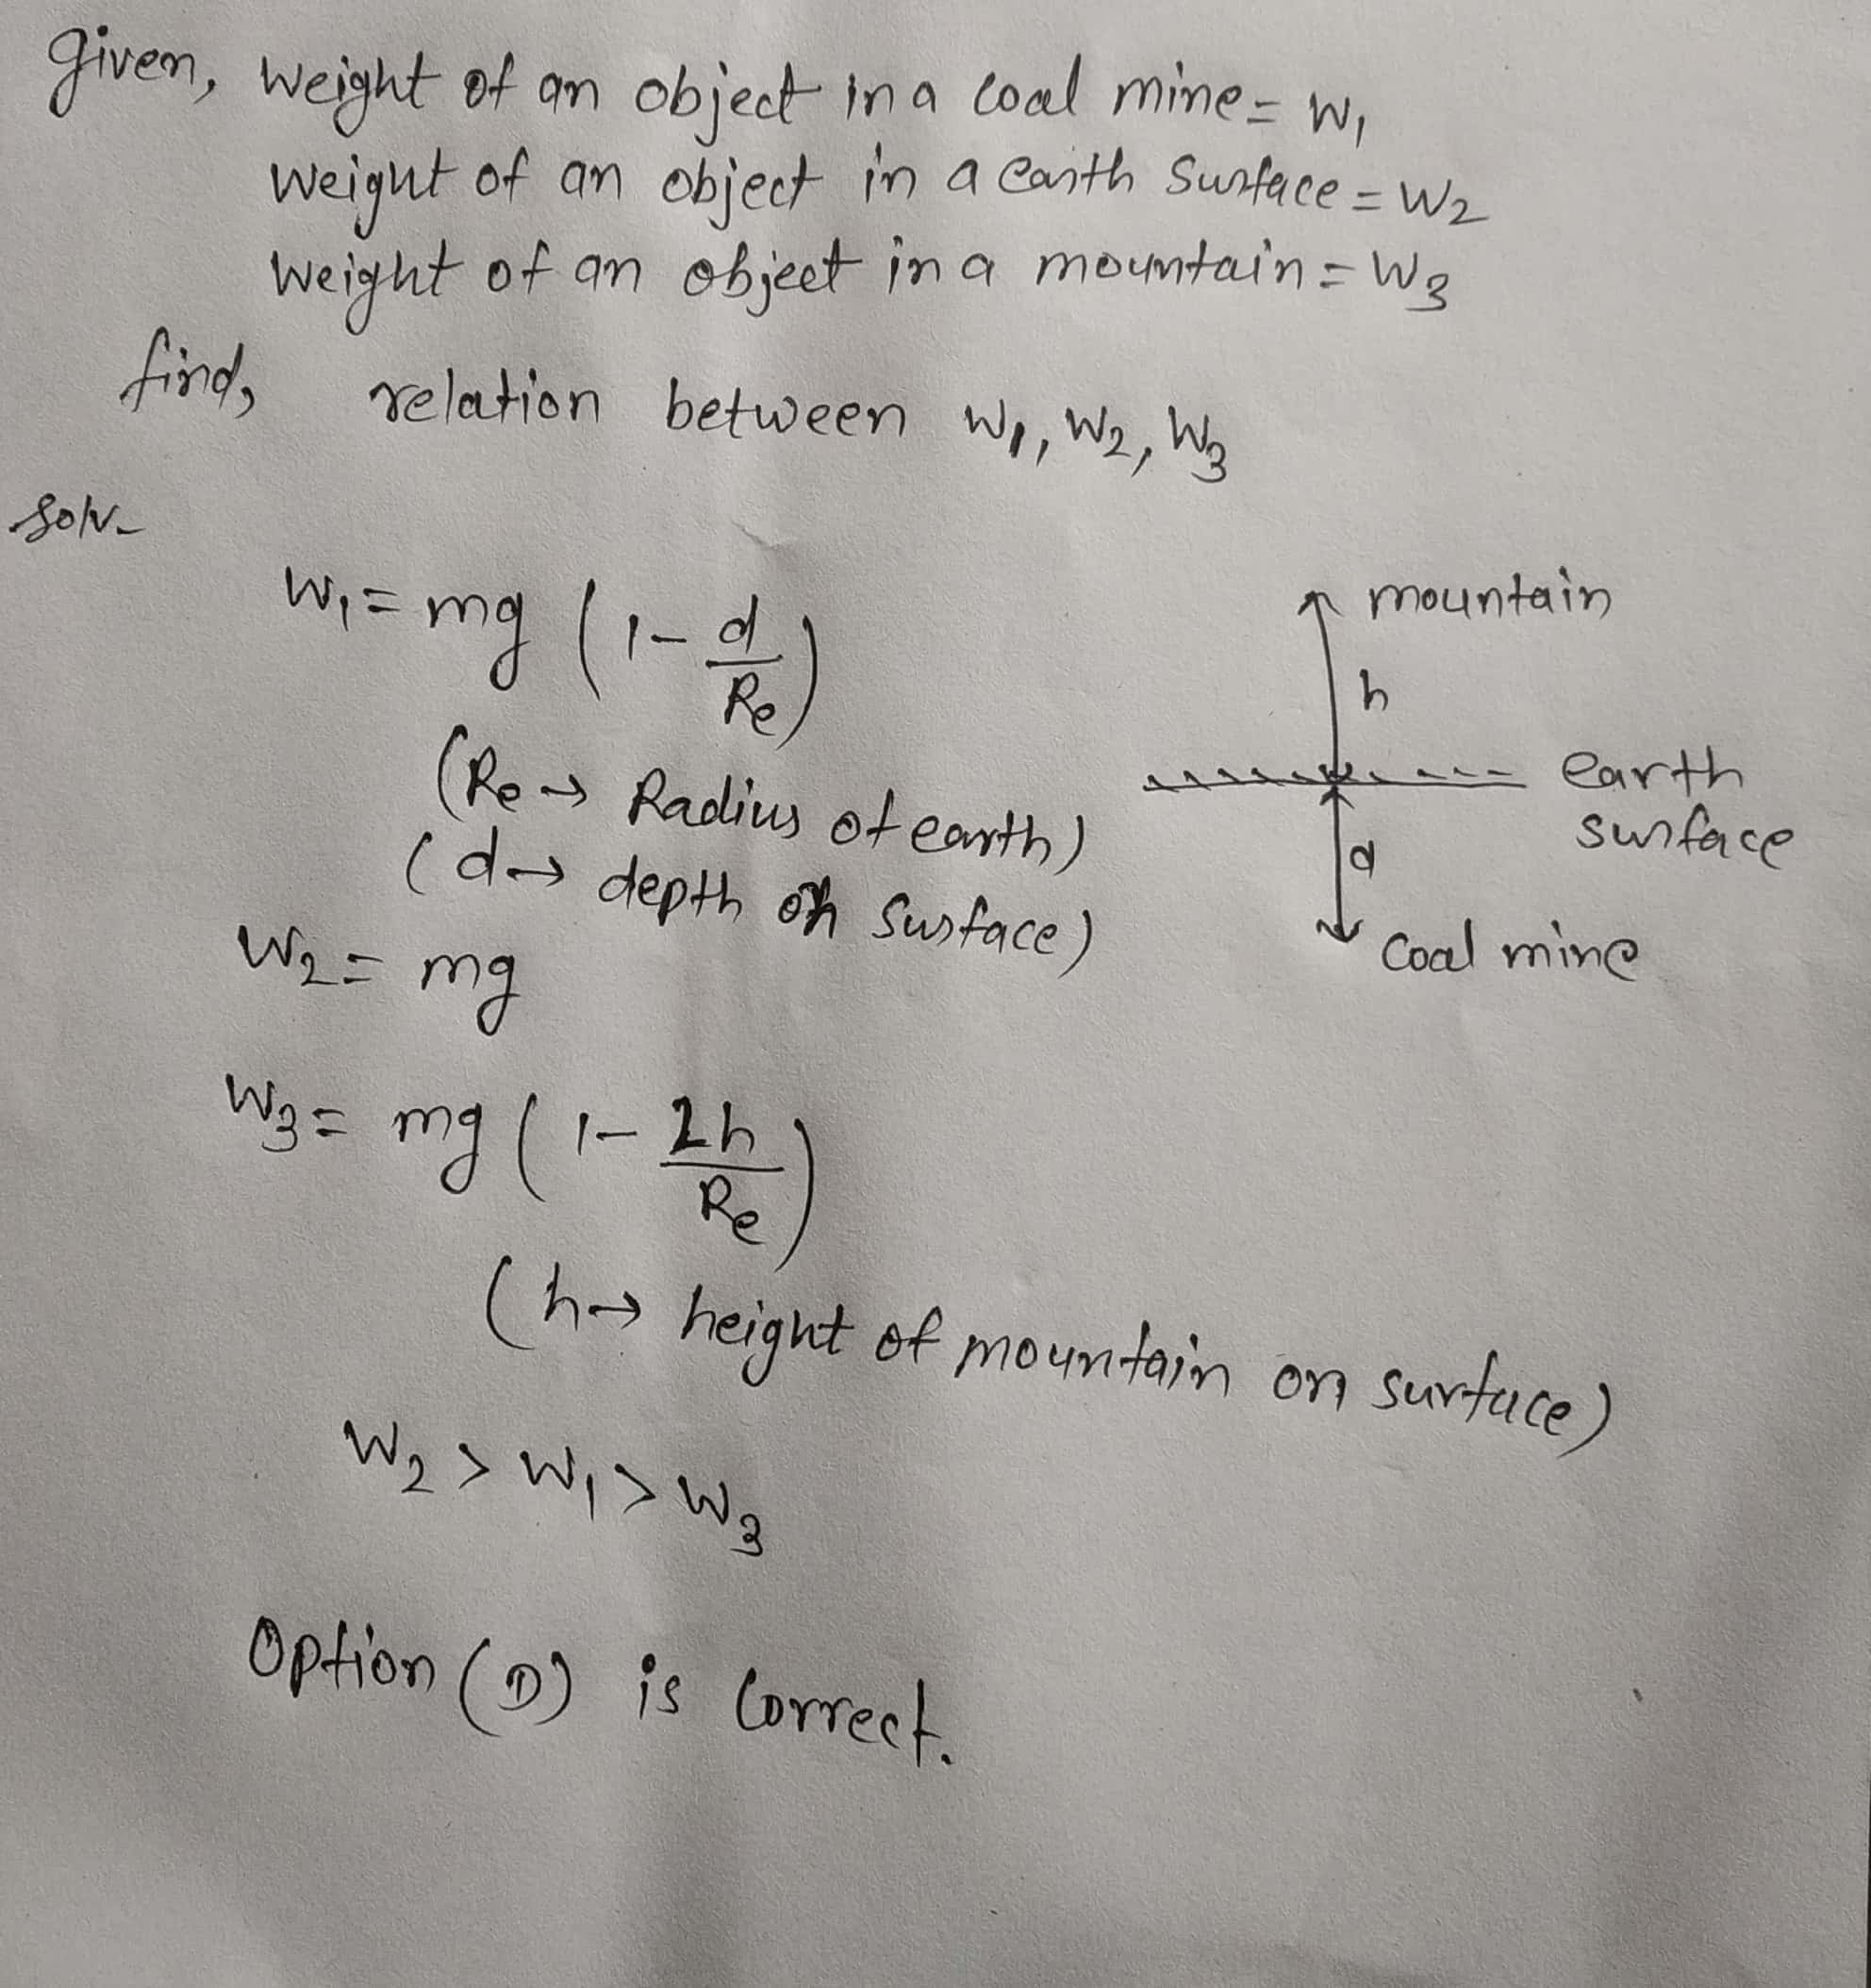 Given, Weight of an object in a coal mine = W₁
Weight of an object in a earth surface = W₂
Weight of an object in a mountain = W₃
find, relation between W₁, W₂, W₃
Soln-
W₁ = mg (1 - d/Re)
(Re → Radius of earth)
(d → depth on surface)
W₂ = mg
W₃ = mg (1 - 2h/Re)
(h → height of mountain on surface)
W₂ > W₁ > W₃
Option (D) is correct.
mountain
h
earth
surface
d
Coal mine